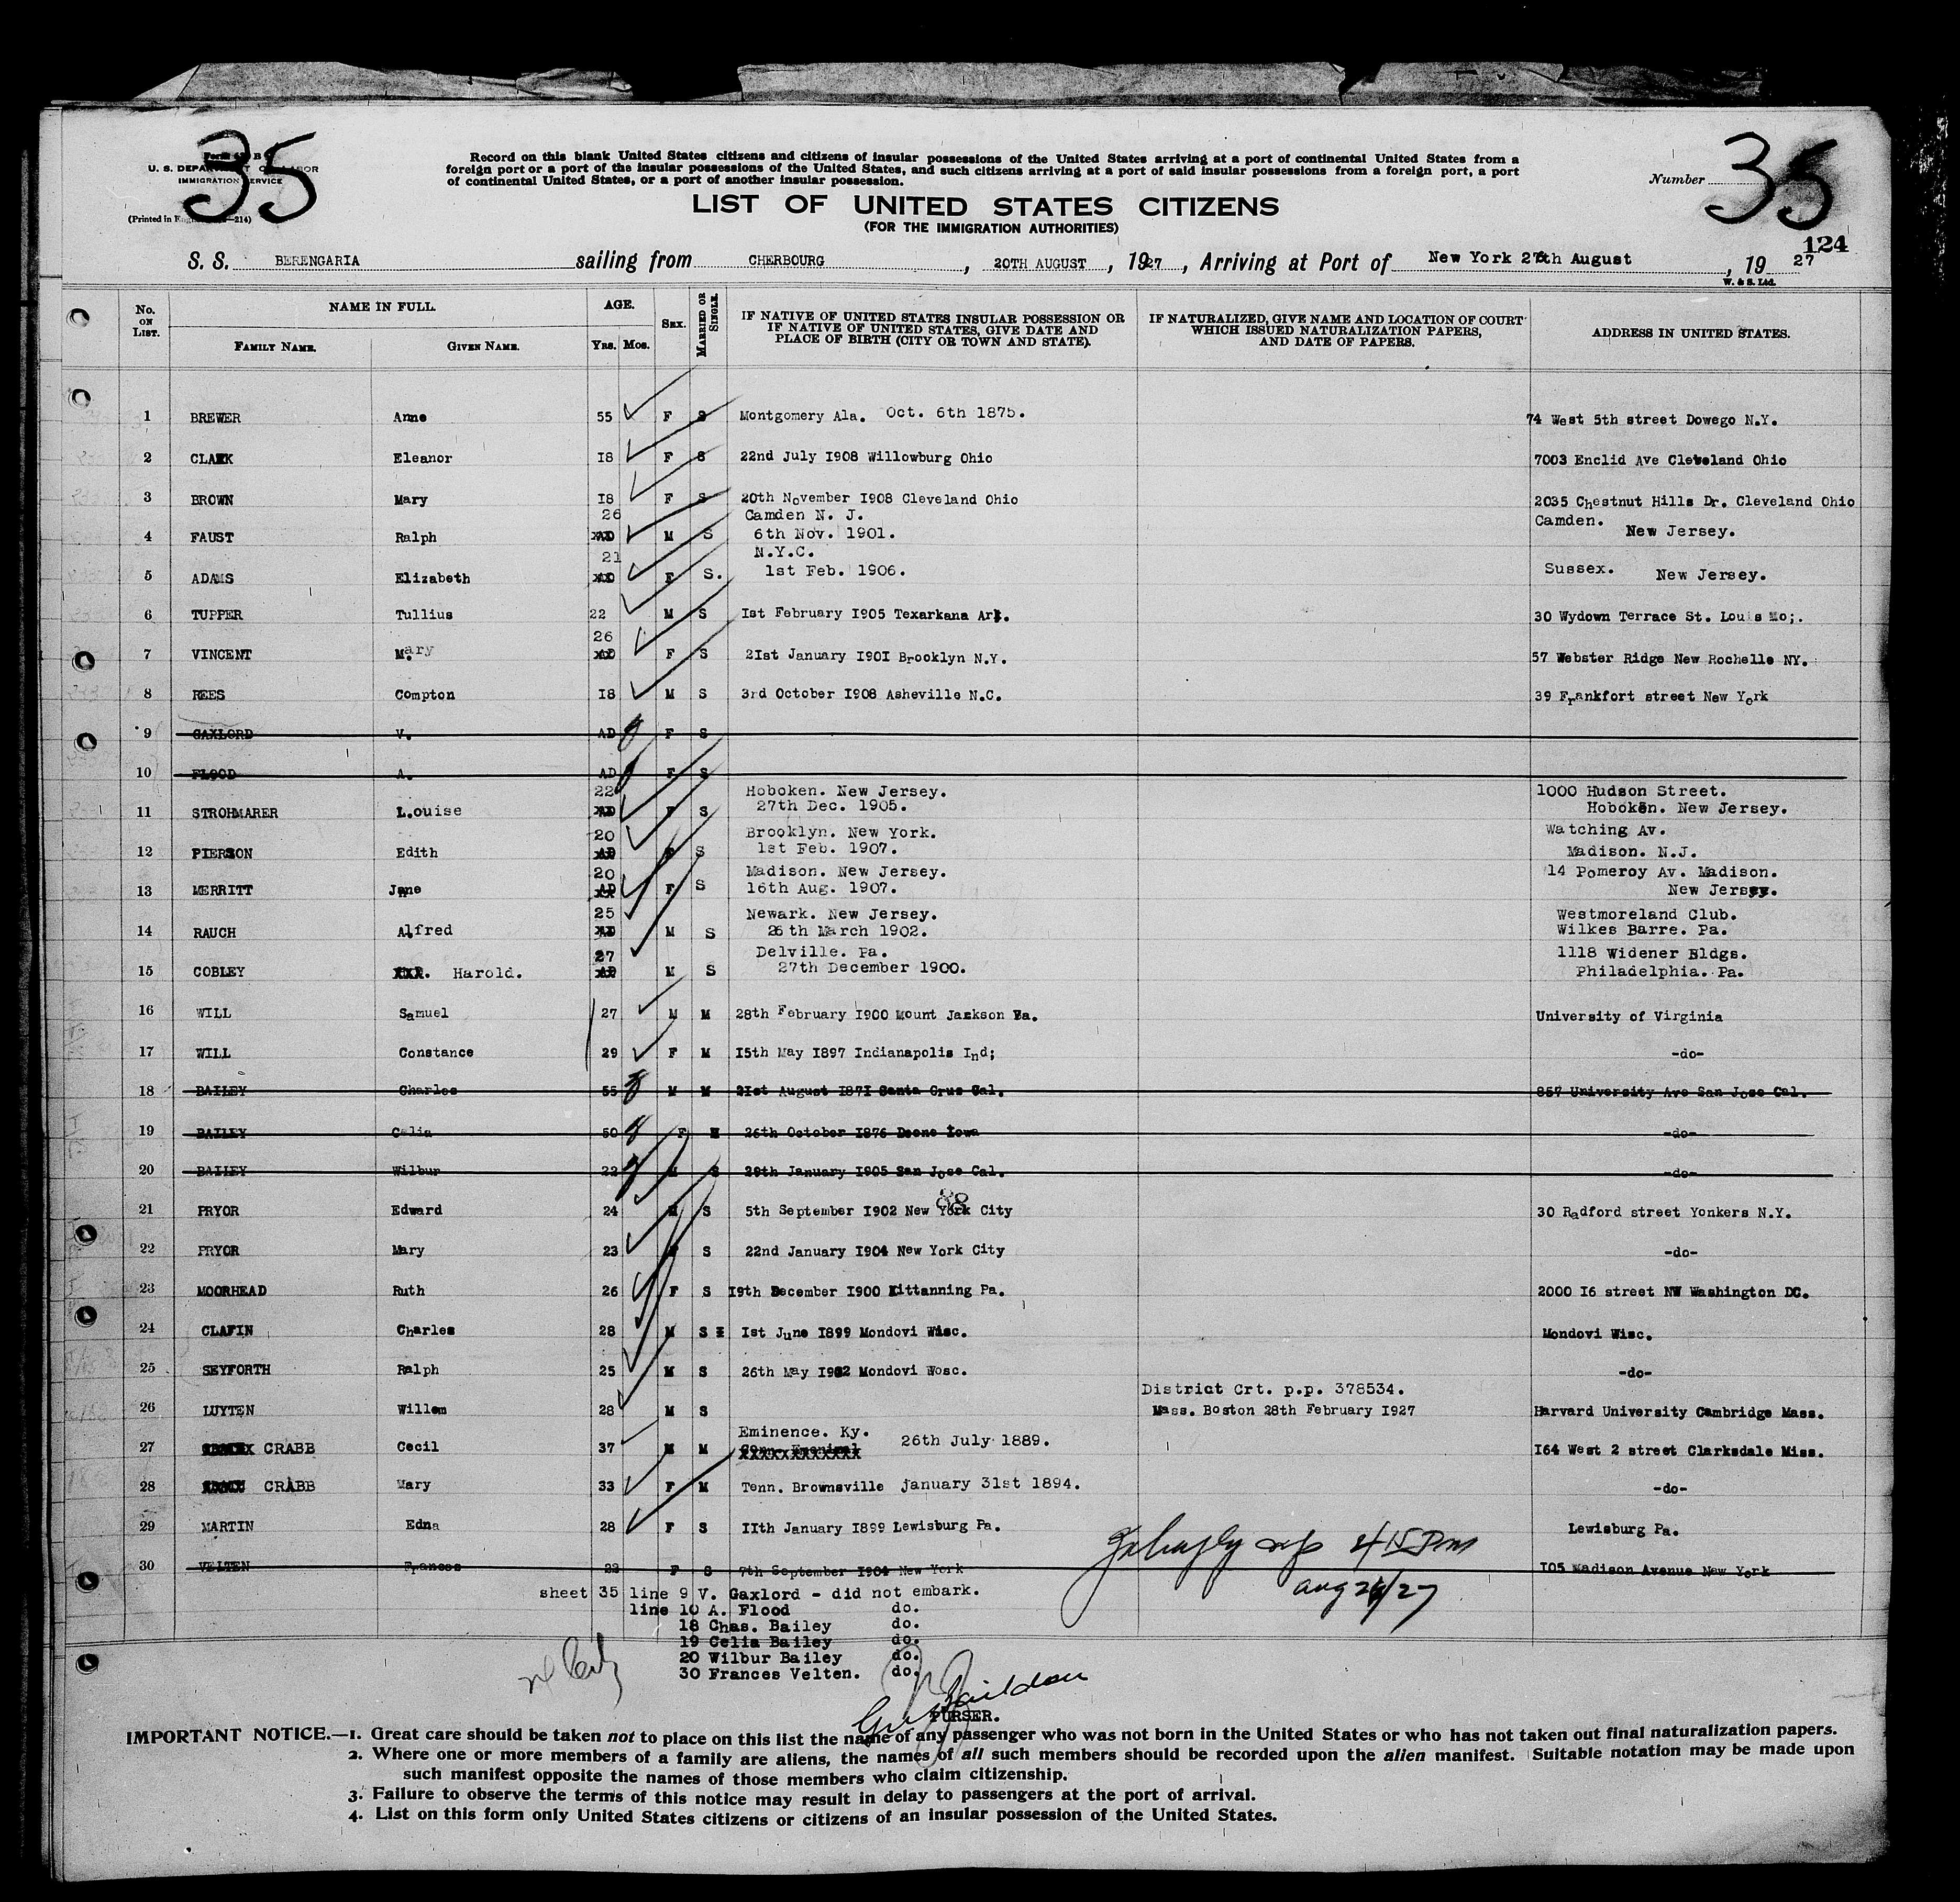 35
Form 630 B
U. S. DEPARTMENT OF LABOR
IMMIGRATION SERVICE
(Printed in England—214)
Record on this blank United States citizens and citizens of insular possessions of the United States arriving at a port of continental United States from a
foreign port or a port of the insular possessions of the United States, and such citizens arriving at a port of said insular possessions from a foreign port, a port
of continental United States, or a port of another insular possession.
Number 35
LIST OF UNITED STATES CITIZENS
(FOR THE IMMIGRATION AUTHORITIES)
124
S. S. BERENGARIA sailing from CHERBOURG, 20TH AUGUST, 1927, Arriving at Port of New York 27th August, 1927
W. & S. Ltd.
No. ON LIST. NAME IN FULL. FAMILY NAME. GIVEN NAME. AGE. Yrs. Mos. SEX. MARRIED OR SINGLE. IF NATIVE OF UNITED STATES INSULAR POSSESSION OR IF NATIVE OF UNITED STATES, GIVE DATE AND PLACE OF BIRTH (CITY OR TOWN AND STATE). IF NATURALIZED, GIVE NAME AND LOCATION OF COURT WHICH ISSUED NATURALIZATION PAPERS, AND DATE OF PAPERS. ADDRESS IN UNITED STATES.
1 BREWER Anne 55 F S Montgomery Ala. Oct. 6th 1875. 74 West 5th street Dowego N.Y.
2 CLARK Eleanor 18 F S 22nd July 1908 Willowburg Ohio 7003 Enclid Ave Cleveland Ohio
3 BROWN Mary 18 F S 20th November 1908 Cleveland Ohio 2035 Chestnut Hills Dr. Cleveland Ohio
4 FAUST Ralph 26 AD M S Camden N. J. 6th Nov. 1901. Camden. New Jersey.
5 ADAMS Elizabeth 21 AD F S. N.Y.C. 1st Feb. 1906. Sussex. New Jersey.
6 TUPPER Tullius 22 M S 1st February 1905 Texarkana Ark. 30 Wydown Terrace St. Louis Mo;.
7 VINCENT Mary 26 AD F S 21st January 1901 Brooklyn N.Y. 57 Webster Ridge New Rochelle NY.
8 REES Compton 18 M S 3rd October 1908 Asheville N.C. 39 Frankfort street New York
9 GAXLORD V. AD F S
10 FLOOD A. AD F S
11 STROHMARER Louise 22 AD F S Hoboken. New Jersey. 27th Dec. 1905. 1000 Hudson Street. Hoboken. New Jersey.
12 PIERSON Edith 20 AD F S Brooklyn. New York. 1st Feb. 1907. Watching Av. Madison. N.J.
13 MERRITT Jane 20 AD F S Madison. New Jersey. 16th Aug. 1907. 14 Pomeroy Av. Madison. New Jersey.
14 RAUCH Alfred 25 AD M S Newark. New Jersey. 26th March 1902. Westmoreland Club. Wilkes Barre. Pa.
15 COBLEY Harold. 27 AD M S Delville. Pa. 27th December 1900. 1118 Widener Bldgs. Philadelphia. Pa.
16 WILL Samuel 27 M M 28th February 1900 Mount Jackson Va. University of Virginia
17 WILL Constance 29 F M 15th May 1897 Indianapolis Ind; -do-
18 BAILEY Charles 55 M M 21st August 1871 Santa Cruz Cal. 857 University Ave San Jose Cal.
19 BAILEY Celia 50 F M 26th October 1876 Boone Iowa -do-
20 BAILEY Wilbur 22 M S 29th January 1905 San Jose Cal. -do-
88
21 PRYOR Edward 24 M S 5th September 1902 New York City 30 Radford street Yonkers N.Y.
22 PRYOR Mary 23 F S 22nd January 1904 New York City -do-
23 MOORHEAD Ruth 26 F S 19th December 1900 Kittanning Pa. 2000 16 street NW Washington DC.
24 CLAFIN Charles 28 M S 1st June 1899 Mondovi Wisc. Mondovi Wisc.
25 SEYFORTH Ralph 25 M S 26th May 1902 Mondovi Wosc. -do-
26 LUYTEN Willem 28 M S District Crt. p.p. 378534. Mass. Boston 28th February 1927 Harvard University Cambridge Mass.
27 CRABB Cecil 37 M M Eminence. Ky. 26th July 1889. 164 West 2 street Clarksdale Miss.
28 CRABB Mary 33 F M Tenn. Brownsville January 31st 1894. -do-
29 MARTIN Edna 28 F S 11th January 1899 Lewisburg Pa. Lewisburg Pa.
30 VELTEN Frances 22 F S 7th September 1904 New York 105 Madison Avenue New York
4 15 Pm
aug 26/27
sheet 35 line 9 V. Gaxlord - did not embark.
line 10 A. Flood do.
18 Chas. Bailey do.
19 Celia Bailey do.
20 Wilbur Bailey do.
30 Frances Velten. do.
PURSER.
IMPORTANT NOTICE.—1. Great care should be taken not to place on this list the name of any passenger who was not born in the United States or who has not taken out final naturalization papers.
2. Where one or more members of a family are aliens, the names of all such members should be recorded upon the alien manifest. Suitable notation may be made upon
such manifest opposite the names of those members who claim citizenship.
3. Failure to observe the terms of this notice may result in delay to passengers at the port of arrival.
4. List on this form only United States citizens or citizens of an insular possession of the United States.